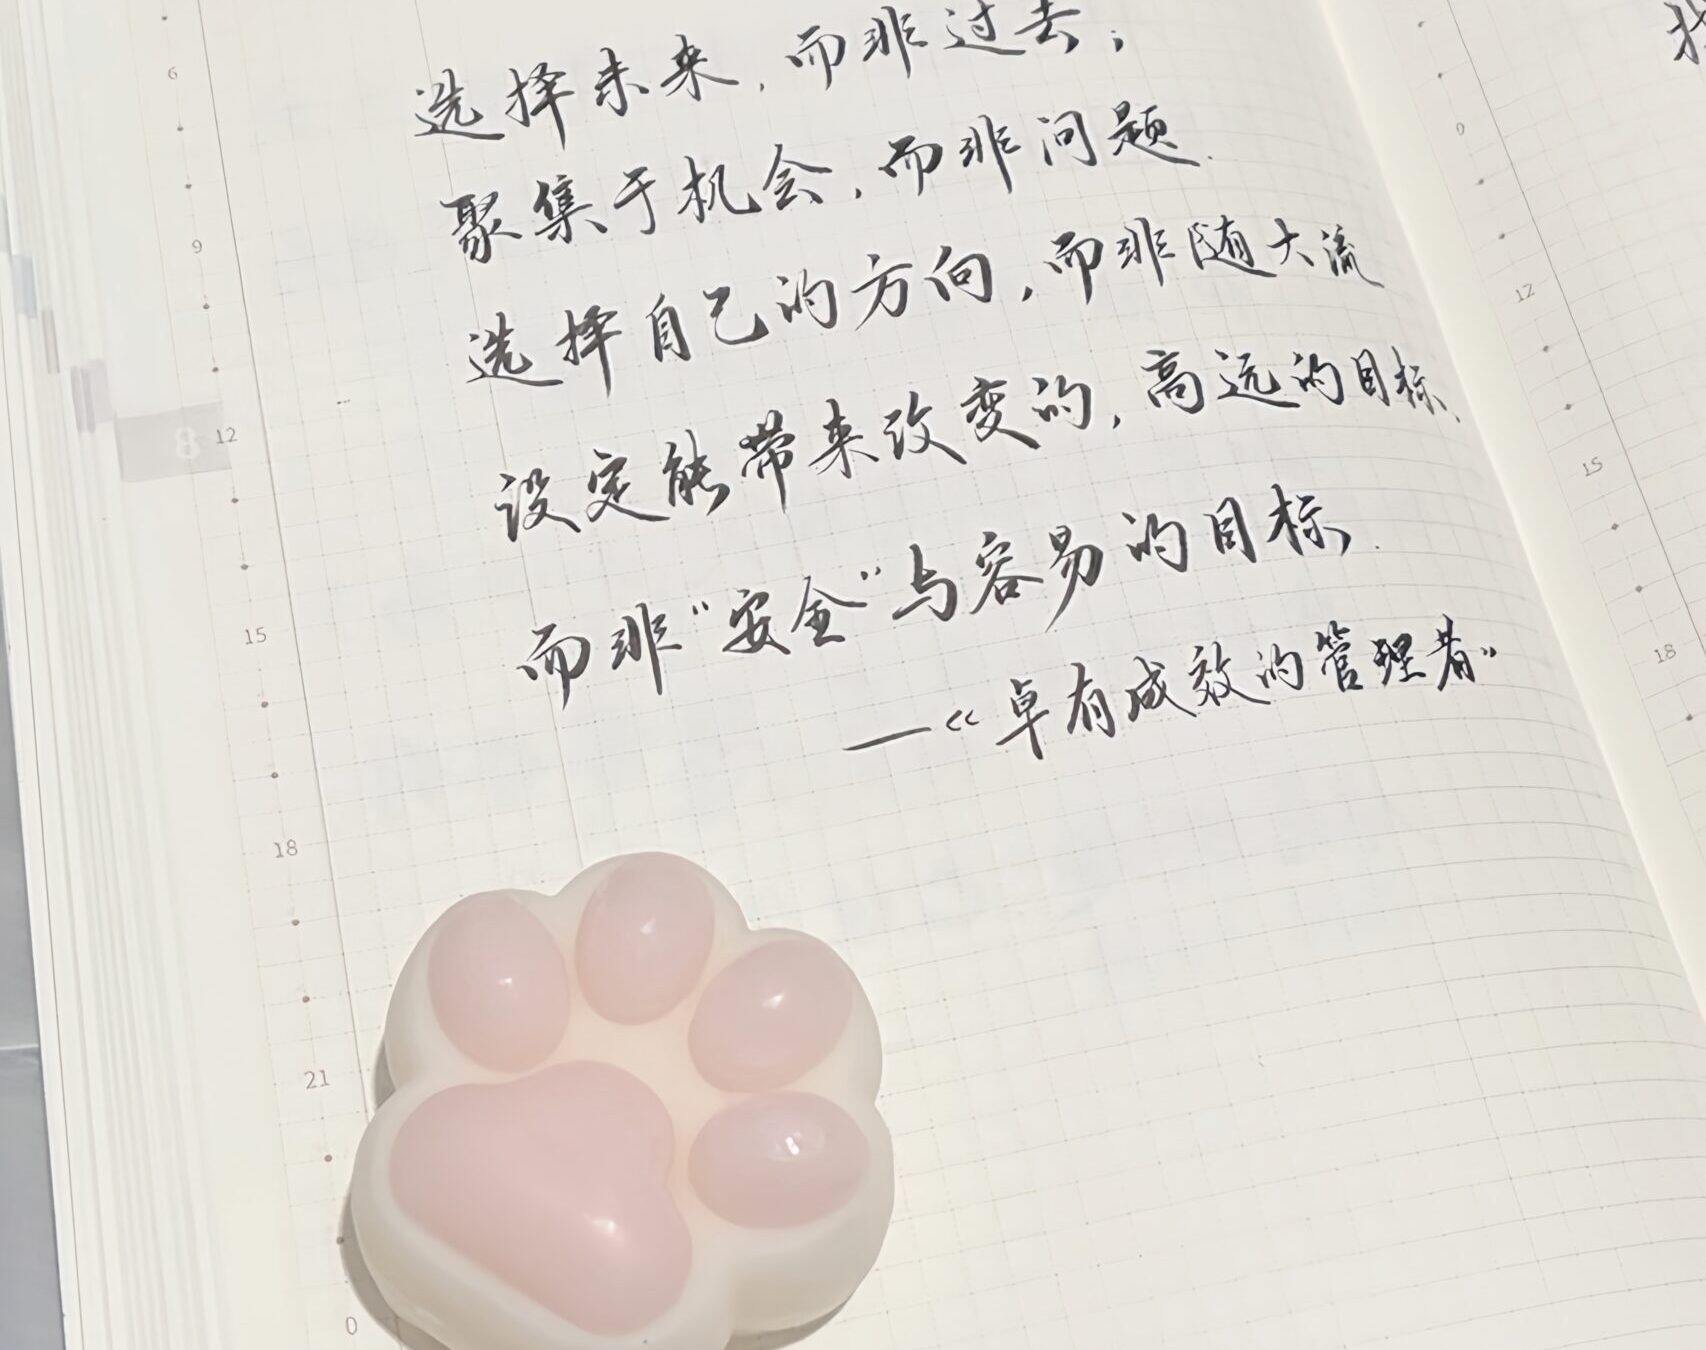 选择未来，而非过去；
聚集于机会，而非问题．
选择自己的方向，而非随大流
设定能带来改变的，高远的目标、
而非“安全”与容易的目标．
—《卓有成效的管理者》
6
9
8
12
15
18
21
0
9
12
15
18